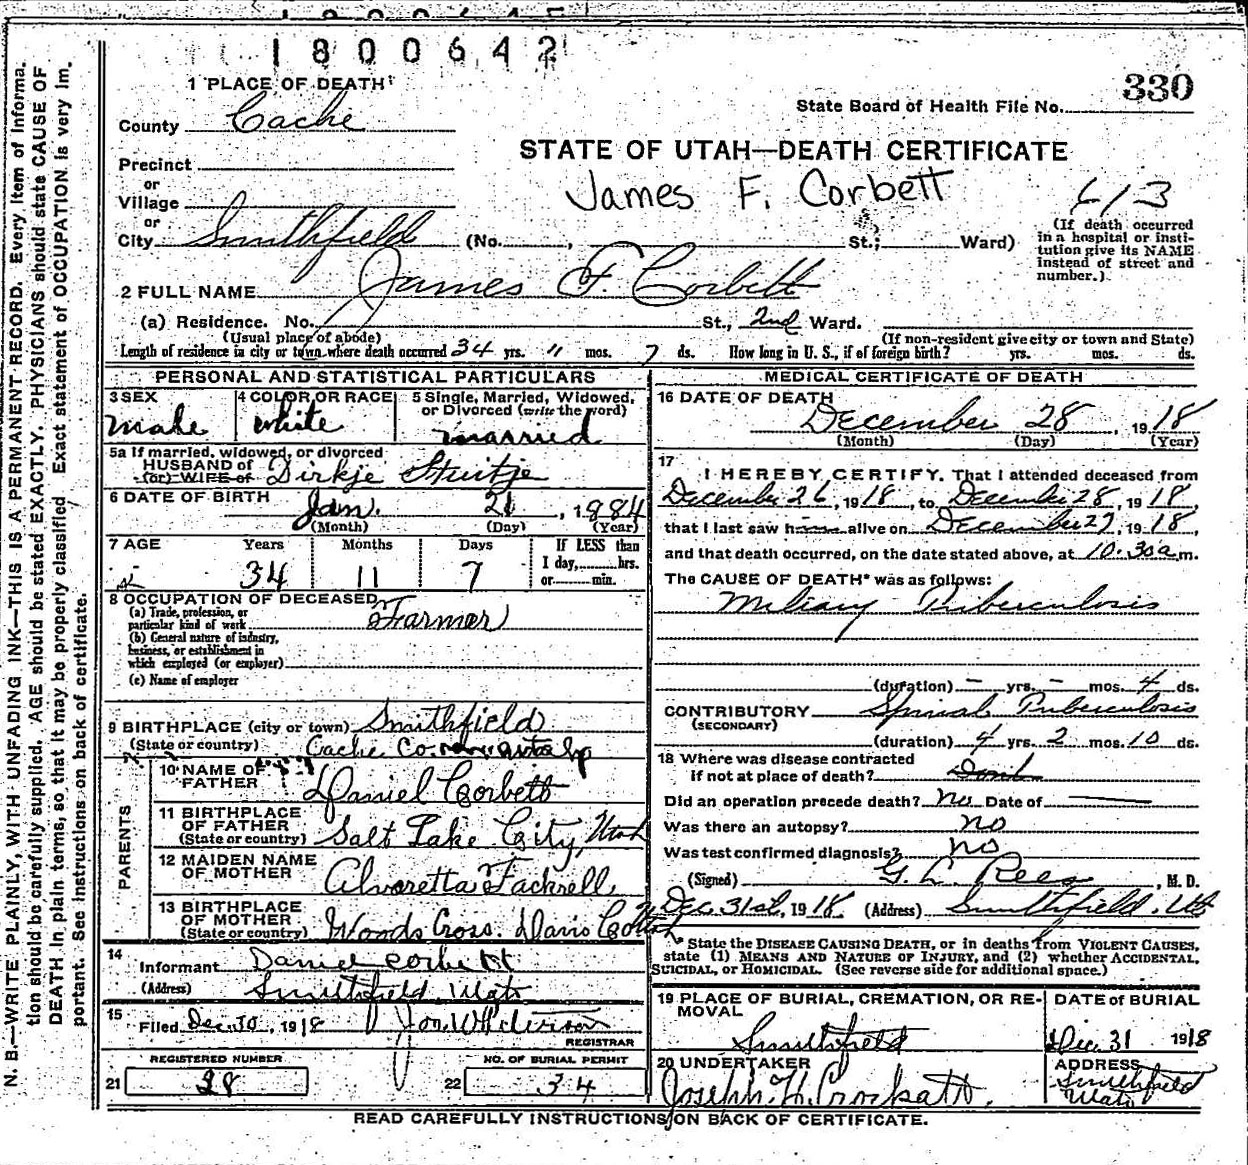 1800642
330
1 PLACE OF DEATH
State Board of Health File No.
County Cache
STATE OF UTAH—DEATH CERTIFICATE
Precinct
or
Village
James F. Corbett
613
or
City Smithfield (No. , St.; Ward)
(If death occurred in a hospital or institution give its NAME instead of street and number.)
2 FULL NAME James F. Corbett
(a) Residence. No. St., 2nd Ward.
(Usual place of abode) (If non-resident give city or town and State)
Length of residence in city or town where death occurred 34 yrs. 11 mos. 7 ds. How long in U. S., if of foreign birth? yrs. mos. ds.
PERSONAL AND STATISTICAL PARTICULARS
3 SEX 4 COLOR OR RACE 5 Single, Married, Widowed, or Divorced (write the word)
male white married
5a If married, widowed, or divorced
HUSBAND of
(or) WIFE of Dirkje Stuitje
6 DATE OF BIRTH Jan. 21, 1884
(Month) (Day) (Year)
7 AGE Years Months Days If LESS than
1 day, hrs.
or min.
34 11 7
8 OCCUPATION OF DECEASED
(a) Trade, profession, or
particular kind of work Farmer
(b) General nature of industry,
business, or establishment in
which employed (or employer)
(c) Name of employer
9 BIRTHPLACE (city or town) Smithfield
(State or country) Cache Co. Utah
PARENTS
10 NAME OF
FATHER Daniel Corbett
11 BIRTHPLACE
OF FATHER
(State or country) Salt Lake City, Utah
12 MAIDEN NAME
OF MOTHER Alvaretta Fackrell
13 BIRTHPLACE
OF MOTHER
(State or country) Woods Cross. Davis Co Utah
14
Informant Daniel Corbett
(Address) Smithfield, Utah
15
Filed Dec. 30, 1918
REGISTRAR
REGISTERED NUMBER NO. OF BURIAL PERMIT
21 28 22 34
MEDICAL CERTIFICATE OF DEATH
16 DATE OF DEATH
December 28, 1918
(Month) (Day) (Year)
17
I HEREBY CERTIFY, That I attended deceased from
December 26, 1918, to December 28, 1918,
that I last saw h alive on December 27, 1918,
and that death occurred, on the date stated above, at 10:30 a m.
The CAUSE OF DEATH* was as follows:
Miliary Tuberculosis
(duration) — yrs. — mos. 4 ds.
CONTRIBUTORY Spinal Tuberculosis
(SECONDARY)
(duration) 4 yrs. 2 mos. 10 ds.
18 Where was disease contracted
if not at place of death?
Did an operation precede death? no Date of
Was there an autopsy? no
Was test confirmed diagnosis? no
(Signed) G. L. Rees, M. D.
Dec. 31st, 1918. (Address) Smithfield, Ut
* State the DISEASE CAUSING DEATH, or in deaths from VIOLENT CAUSES,
state (1) MEANS AND NATURE OF INJURY, and (2) whether ACCIDENTAL,
SUICIDAL, or HOMICIDAL. (See reverse side for additional space.)
19 PLACE OF BURIAL, CREMATION, OR REMOVAL DATE of BURIAL
Smithfield Dec. 31 1918
20 UNDERTAKER ADDRESS
Joseph H. Crockett. Smithfield Utah
READ CAREFULLY INSTRUCTIONS ON BACK OF CERTIFICATE.
N. B.—WRITE PLAINLY, WITH UNFADING INK—THIS IS A PERMANENT RECORD. Every item of Informa-
tion should be carefully supplied. AGE should be stated EXACTLY. PHYSICIANS should state CAUSE OF
DEATH in plain terms, so that it may be properly classified. Exact statement of OCCUPATION is very im-
portant. See instructions on back of certificate.